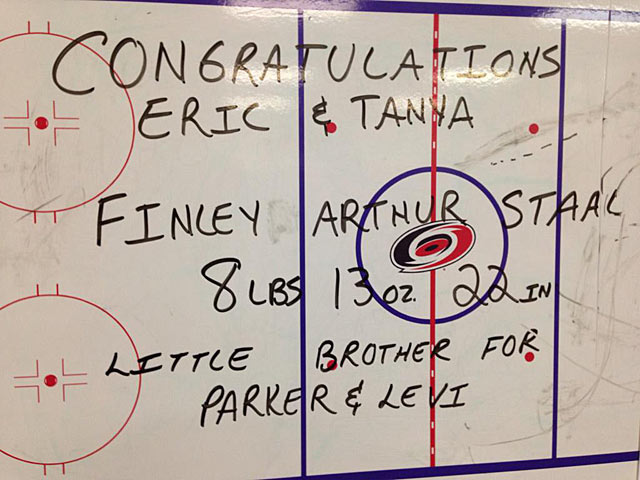 CONGRATULATIONS
ERIC & TANYA
FINLEY ARTHUR STAAL
8 LBS 13 OZ. 22 IN
LITTLE BROTHER FOR
PARKER & LEVI